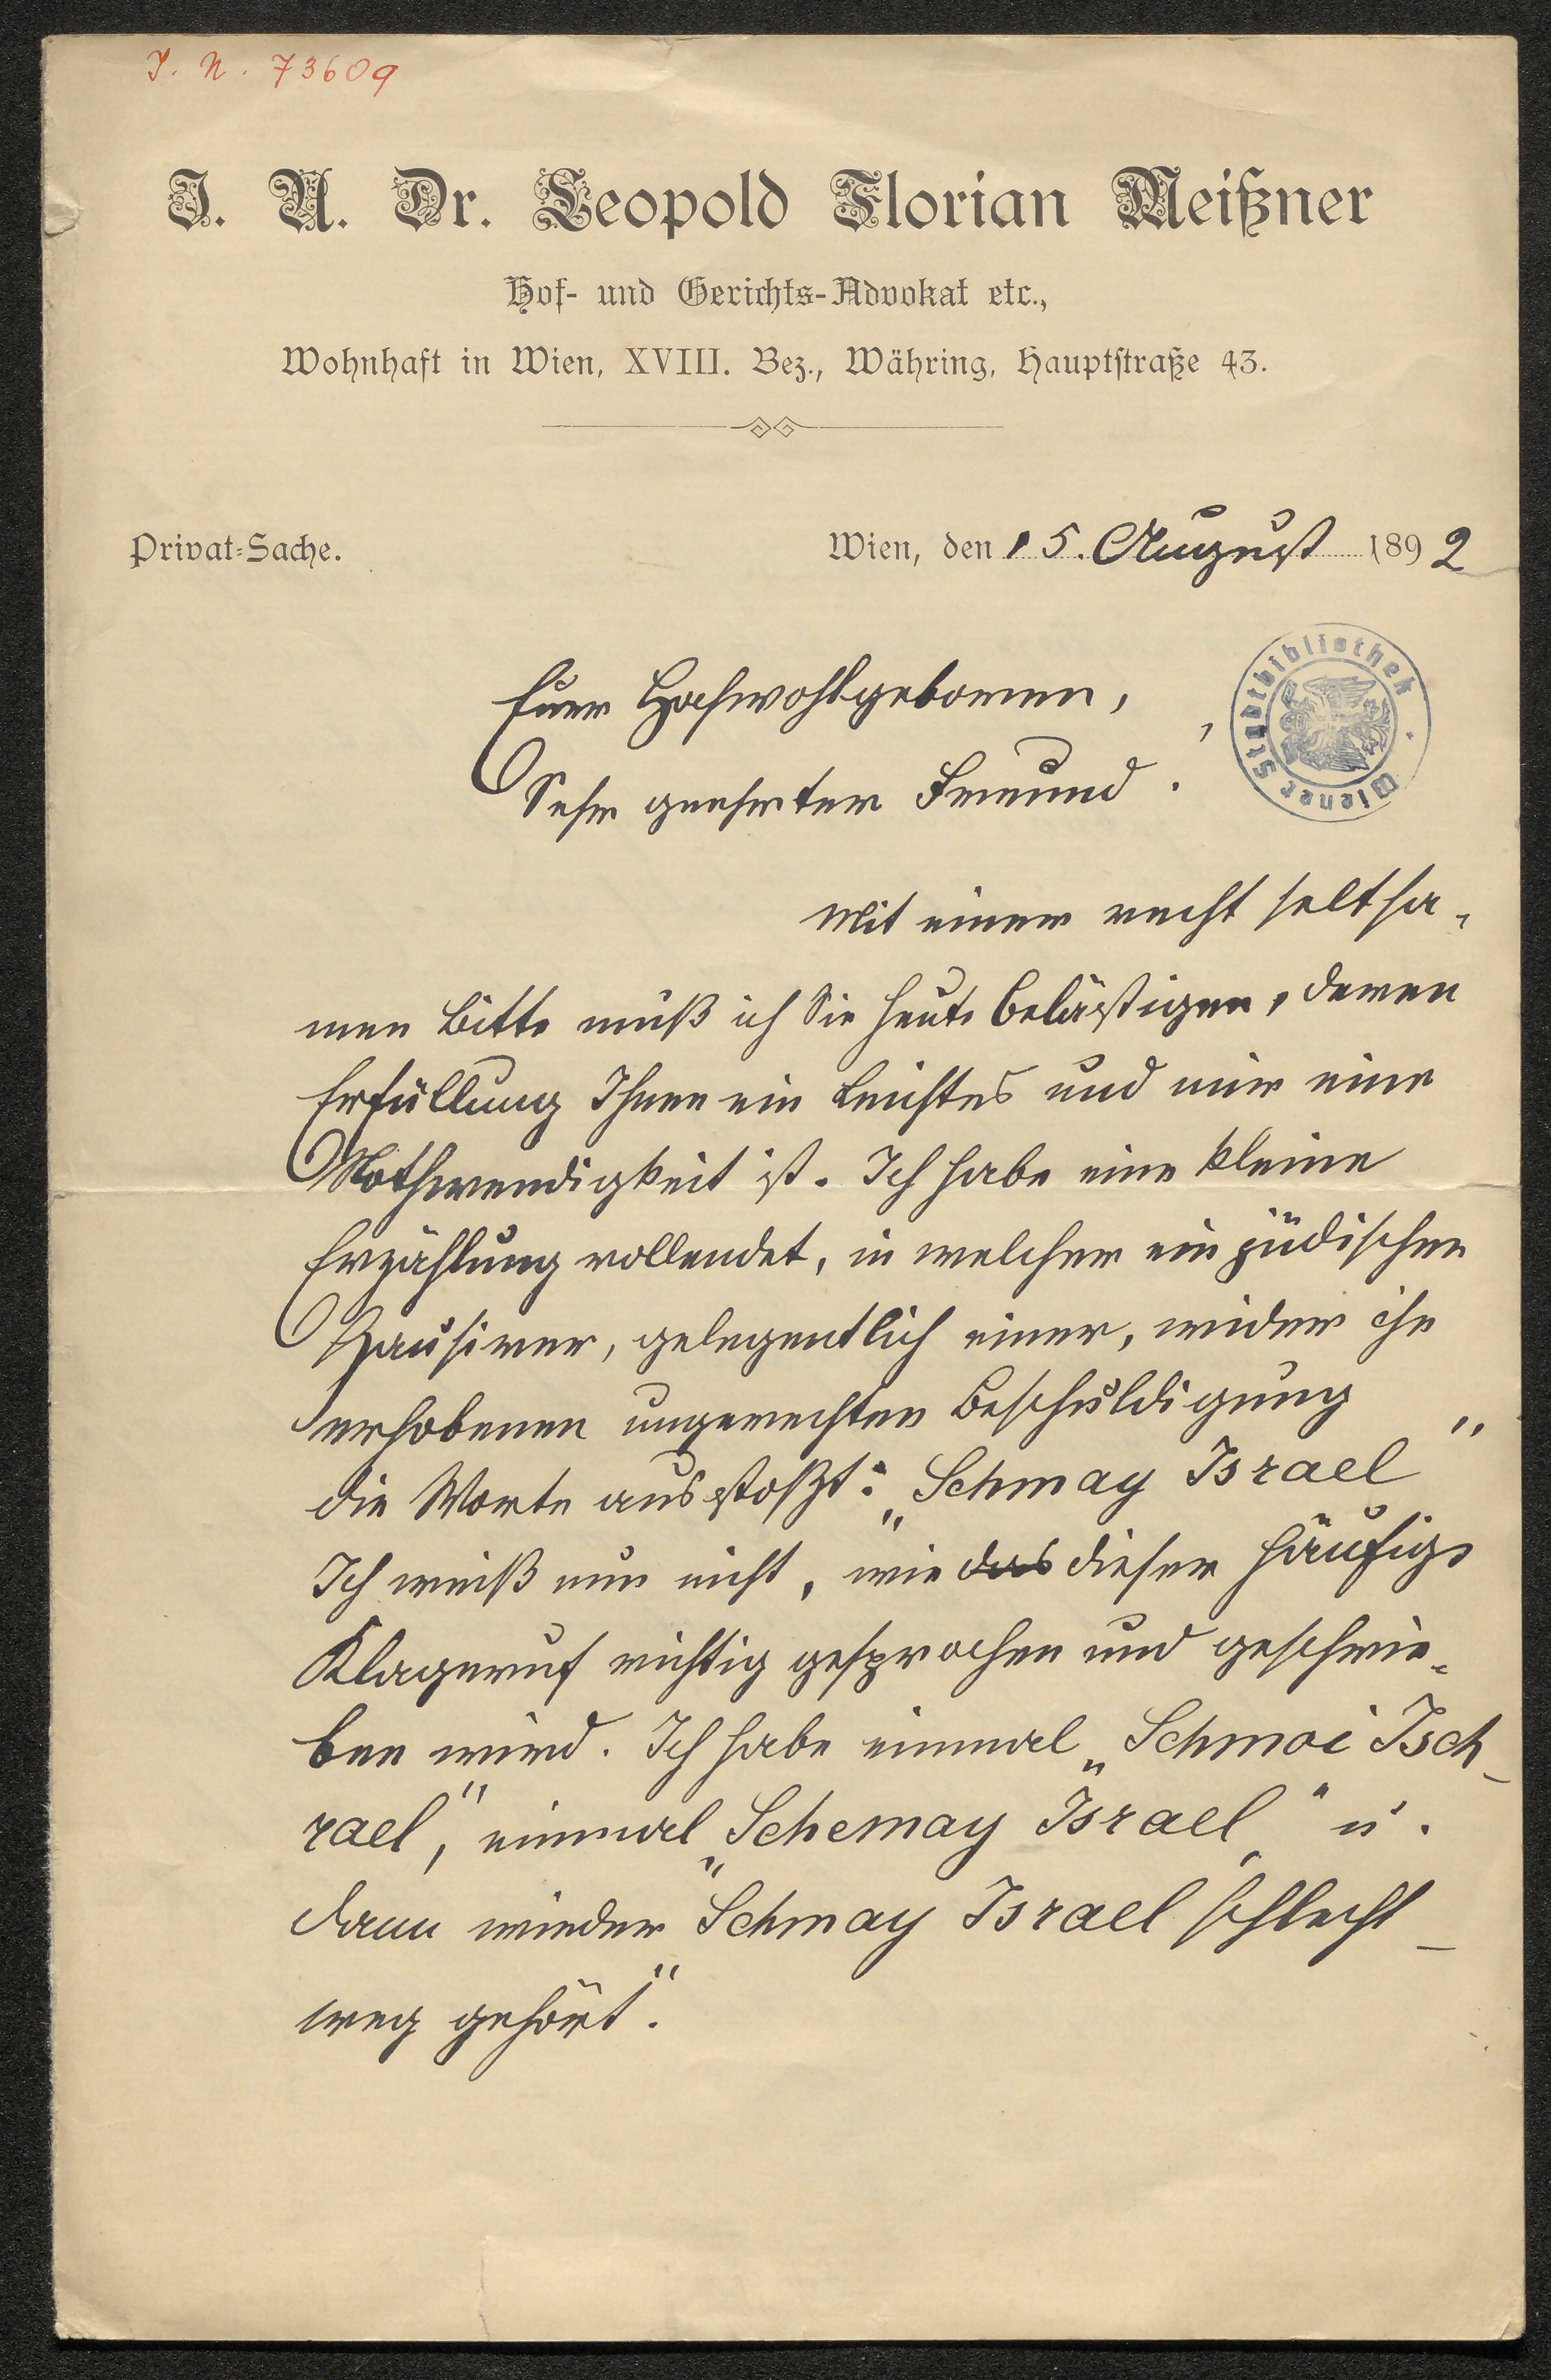 J. N. 73609
J. U. Dr. Leopold Florian Meißner
Hof- und Gerichts-Advokat etc.,
Wohnhaft in Wien, XVIII. Bez., Währing, Hauptstraße 43.
Privat-Sache.
Wien, den 15. August 1892
Wiener Stadtbibliothek
Euer Hochwohlgeboren,
Sehr geehrter Freund!
Mit einer recht seltsa-
men Bitte muß ich Sie heute belästigen, deren
Erfüllung Ihnen ein Leichtes und mir eine
Nothwendigkeit ist. Ich habe eine kleine
Erzählung vollendet, in welcher ein jüdischer
Hausirer, gelegentlich einer, wider ihn
erhobenen ungerechten Beschuldigung
die Worte ausstoßt: „Schmay Israel"
Ich weiß nun nicht, wie das dieser häufige
Klageruf richtig gesprochen und geschrie-
ben wird. Ich habe einmal „Schmoi Isch-
rael", einmal „Schemay Israel" u.
dann wieder „Schmay Israel schlecht-
weg gehört".